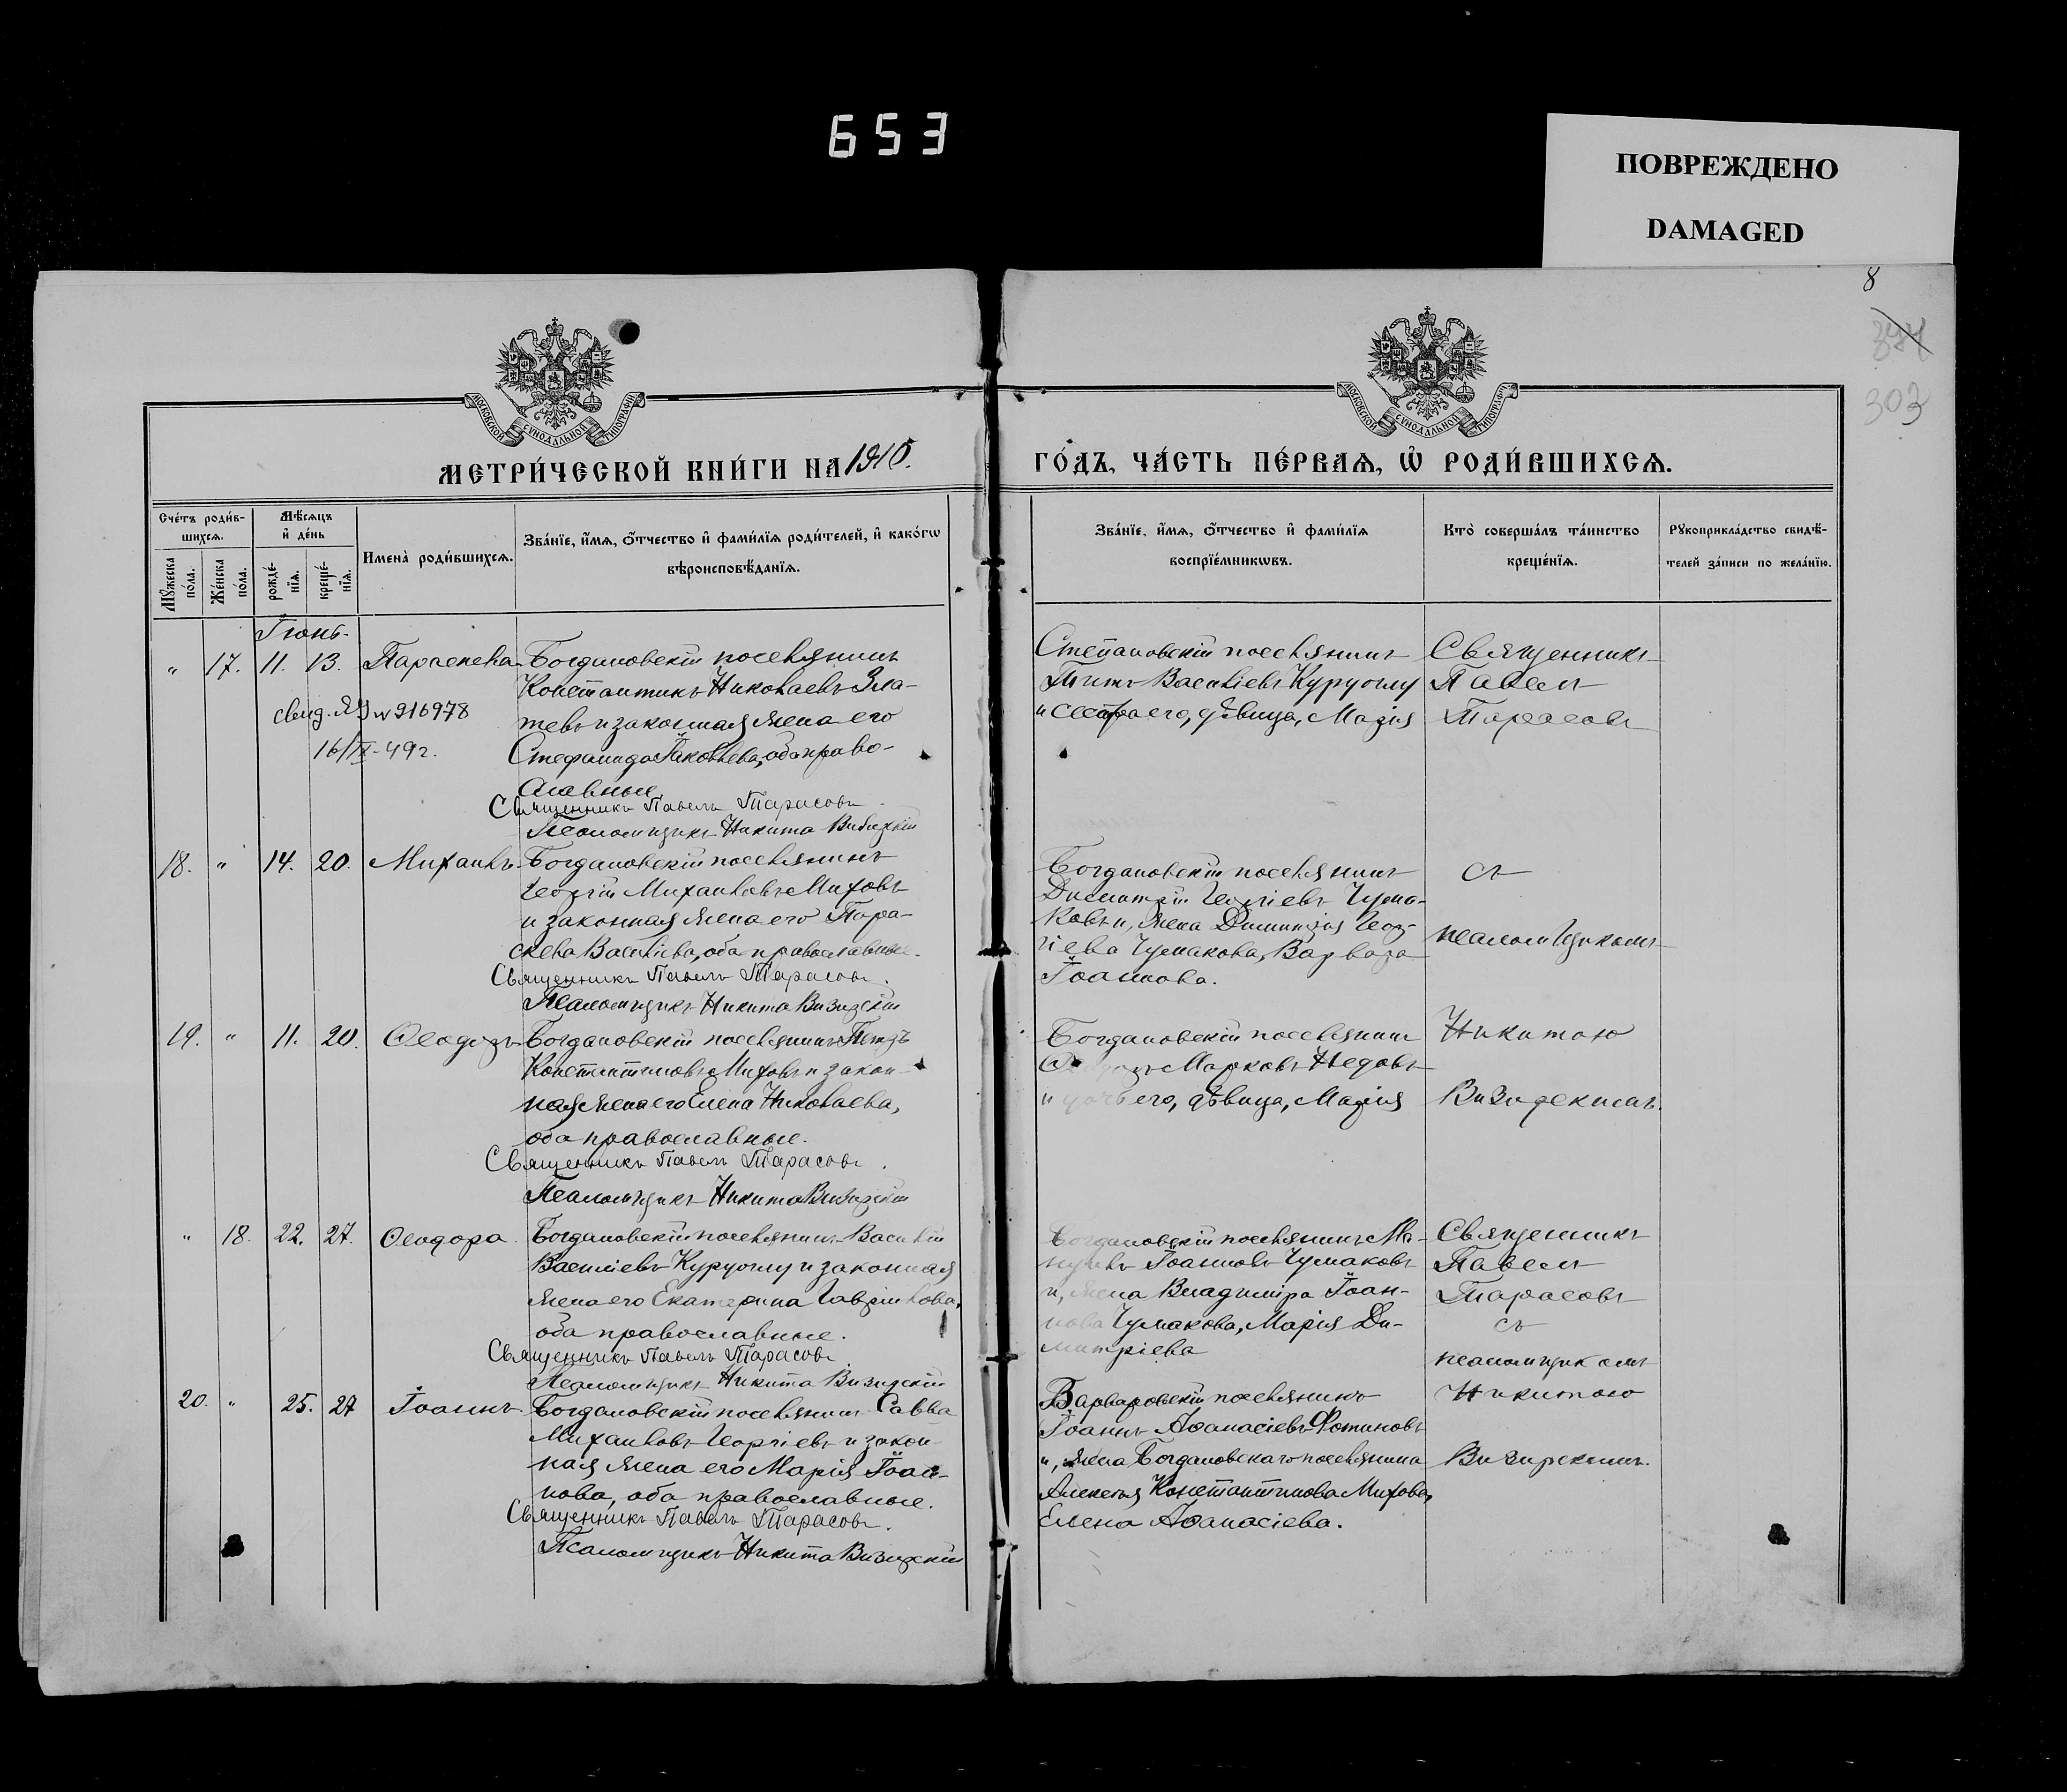 653
ПОВРЕЖДЕНО
DAMAGED
8
303
МОСКОВСКОЙ СѴНОДАЛЬНОЙ ТИПОГРАФІИ
МОСКОВСКОЙ СѴНОДАЛЬНОЙ ТИПОГРАФІИ
МЕТРИ́ЧЕСКОЙ КНИ́ГИ НА 1910.
ГО́ДЪ, ЧА́СТЬ ПЕ́РВАѦ, Ѽ РОДИ́ВШИХСѦ.
Сче́тъ роди́в-
шихсѧ.
Мѣ́сѧцъ
и҆ де́нь
Мꙋ́жеска
по́ла.
Же́нска
по́ла.
рожде́-
нїѧ.
креще́-
нїѧ.
Имена̀ роди́вшихсѧ.
Зва́нїе, и҆́мѧ, ѻ҆́тчество и҆ фами́лїѧ роди́телей, и҆ како́гѡ
вѣроисповѣ́данїѧ.
Зва́нїе, и҆́мѧ, ѻ҆́тчество и҆ фами́лїѧ
воспрїе́мникѡвъ.
Кто̀ соверша́лъ та́инство
креще́нїѧ.
Рꙋкоприкла́дство свидѣ́-
телей за́писи по жела́нїю.
Іюнь.
" 17. 11. 13. Параскева
свид. ЯУ № 916978
16/IX-49г.
Богдановскій поселянинъ
Константинъ Николаевъ Зла-
тевъ и законная жена его
Стефанида Іаковлева, оба право-
славные.
Священникъ Павелъ Тарасовъ.
Псаломщикъ Никита Визирскій
Степановскій поселянинъ
Титъ Василіевъ Куруоглу
и сестра его, дѣвица, Марія
Священникъ
Павелъ
Тарасовъ
18. " 14. 20. Михаилъ
Богдановскій поселянинъ
Георгій Михаиловъ Миховъ
и законная жена его Пара-
скева Василіева, оба православные.
Священникъ Павелъ Тарасовъ.
Псаломщикъ Никита Визирскій
Богдановскій поселянинъ
Димитрій Георгіевъ Чума-
ковъ и, жена Димитрія Геор-
гіева Чумакова, Варвара
Іоаннова.
съ
псаломщикомъ
19. " 11. 20. Ѳеодоръ
Богдановскій поселянинъ Петръ
Константиновъ Миховъ и закон-
ная жена его Елена Николаева,
оба православные.
Священникъ Павелъ Тарасовъ.
Псаломщикъ Никита Визирскій
Богдановскій поселянинъ
Марковъ Недовъ
и дочь его, дѣвица, Марія
Никитою
Визирскимъ.
" 18. 22. 27. Ѳеодора
Богдановскій поселянинъ Василій
Василіевъ Куруоглу и законная
жена его Екатерина Гавріилова,
оба православные.
Священникъ Павелъ Тарасовъ
Псаломщикъ Никита Визирскій
Богдановскій поселянинъ Ма-
нуилъ Іоанновъ Чумаковъ
и, жена Владиміра Іоан-
нова Чумакова, Марія Ди-
митріева
Священникъ
Павелъ
Тарасовъ
съ
псаломщикомъ
20. " 25. 27 Іоаннъ
Богдановскій поселянинъ Савва
Михаиловъ Георгіевъ и закон-
ная жена его Марія Іоан-
нова, оба православные.
Священникъ Павелъ Тарасовъ.
Псаломщикъ Никита Визирскій
Варваровскій поселянинъ
Іоаннъ Аѳанасіевъ Фотиновъ
и, жена Богдановскаго поселянина
Алексѣя Константинова Михова,
Елена Аѳанасіева.
Никитою
Визирскимъ.